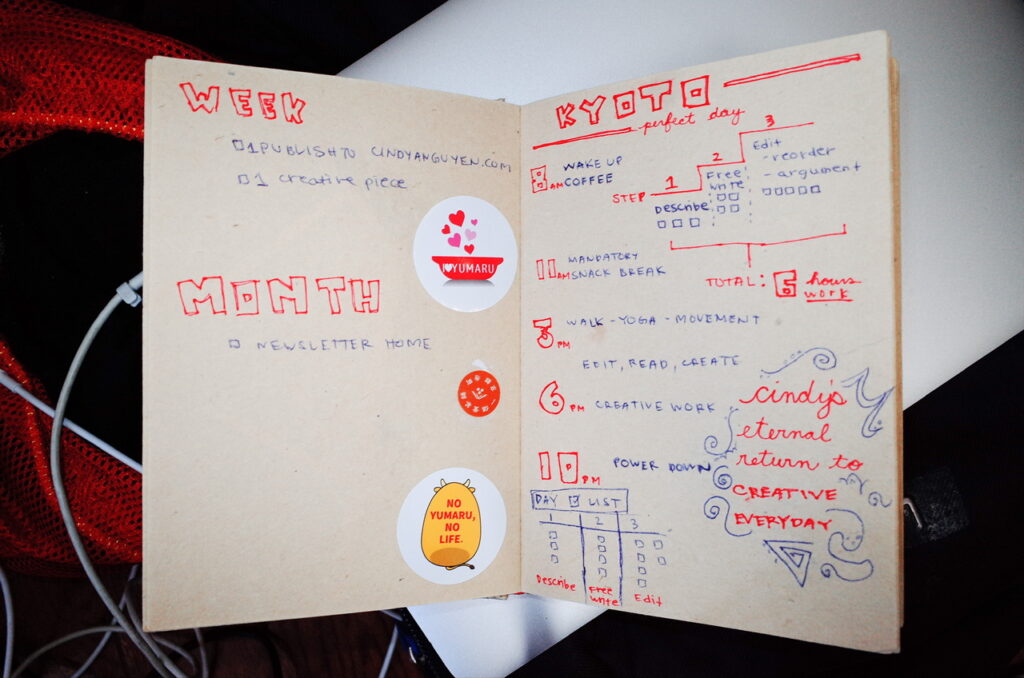 WEEK
1 PUBLISH TO CINDYANGUYEN.COM
1 creative piece
I ♥ YUMARU
MONTH
NEWSLETTER HOME
NO
YUMARU,
NO
LIFE.
KYOTO
perfect day
8 AM WAKE UP
COFFEE
STEP 1
Describe
2
Free
write
3
Edit
- reorder
- argument
TOTAL: 6 hours
work
11 AM MANDATORY
SNACK BREAK
3 PM WALK - YOGA - MOVEMENT
EDIT, READ, CREATE
6 PM CREATIVE WORK
10 PM POWER DOWN
cindy's
eternal
return to
CREATIVE
EVERYDAY
DAY LIST
1 2 3
Describe Free write Edit